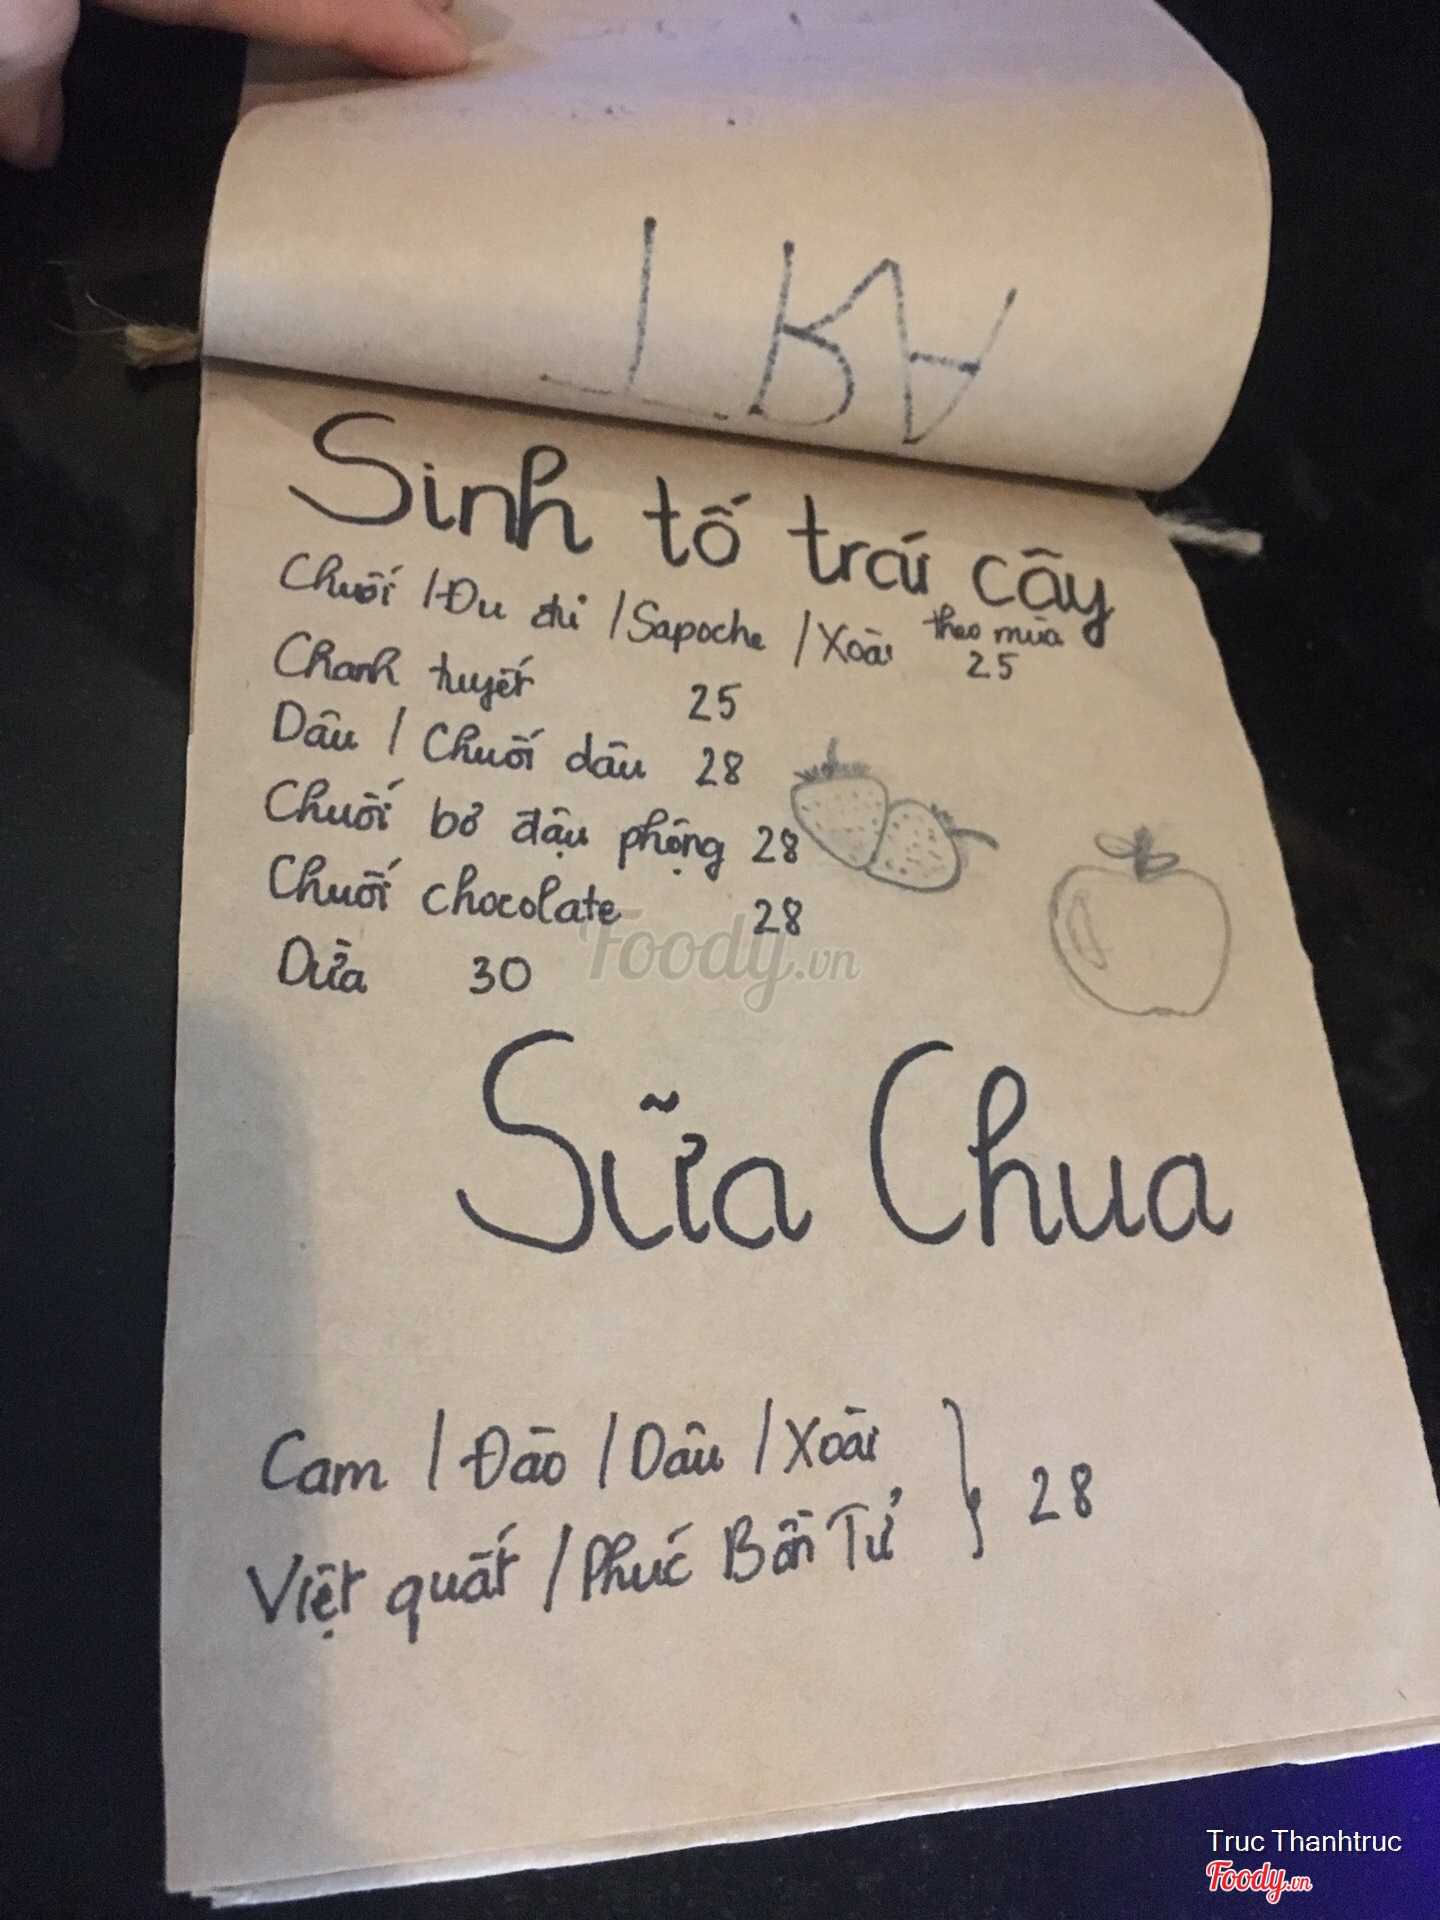 ART
Sinh tố trái cây
Chuối / Đu đủ / Sapoche / Xoài theo mùa 25
Chanh tuyết 25
Dâu / Chuối dâu 28
Chuối bơ đậu phộng 28
Chuối chocolate 28
Dừa 30
Foody.vn
Sữa Chua
Cam / Đào / Dâu / Xoài
Việt quất / Phúc Bồn Tử } 28
Truc Thanhtruc
Foody.vn